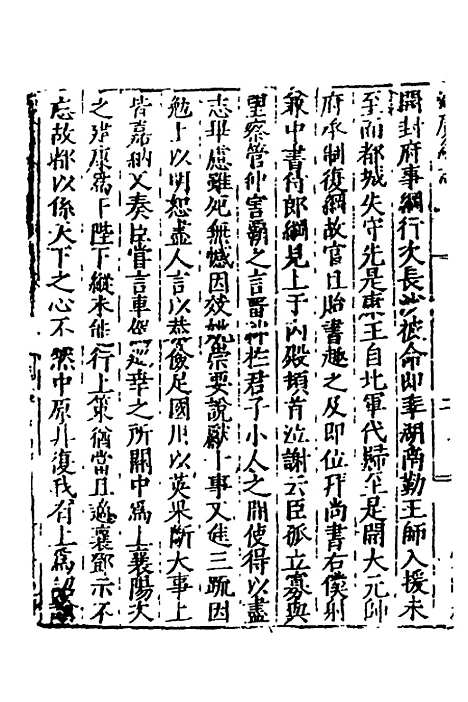 開封府事綱行次長沙被命即率湖南勤王師入援未
至而都城失守先是康王自北軍代歸至是開大元帥
府承制復綱故官且貽書趣之及即位拜尚書右僕射
兼中書侍郎綱見上于內殿頓首泣謝云臣孤立寡與
望察管仲害霸之言留神於君子小人之間使得以盡
志畢慮雖死無憾因效姚崇要說獻十事又進三疏因
勉上以明恕盡人言以恭儉足國用以英果斷大事上
皆嘉納又奏臣嘗言車駕巡幸之所關中爲上襄陽次
之建康爲下陛下縱未能行上策猶當且適襄鄧示不
忘故都以係天下之心不然中原非復我有上爲詔